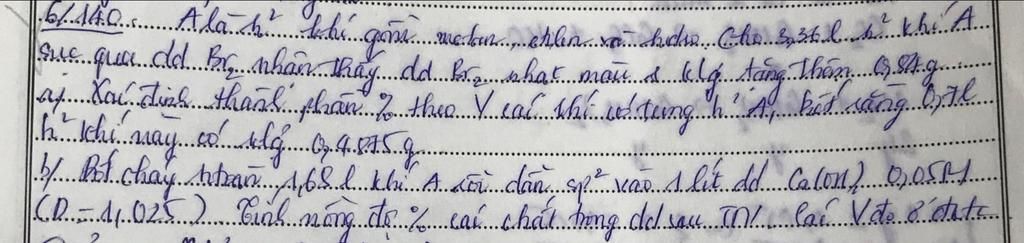 6/140. A là h² khí gồm metan, etilen và hidro. Cho 3,36l h² khí A
sục qua dd Br₂ nhận thấy dd Br₂ nhạt màu & klg tăng thêm 0,84g
a/ Xác định thành phần % theo V các khí có trong h² A, biết rằng 0,7l
h² khí này có klg 0,4875g
b/ Đốt cháy htoàn 1,68l khí A rồi dẫn sp² vào 1 lít dd Ca(OH)₂ 0,05M
(D = 1,025) Tính nồng độ % các chất trong dd sau TN. Các V đo ở đktc